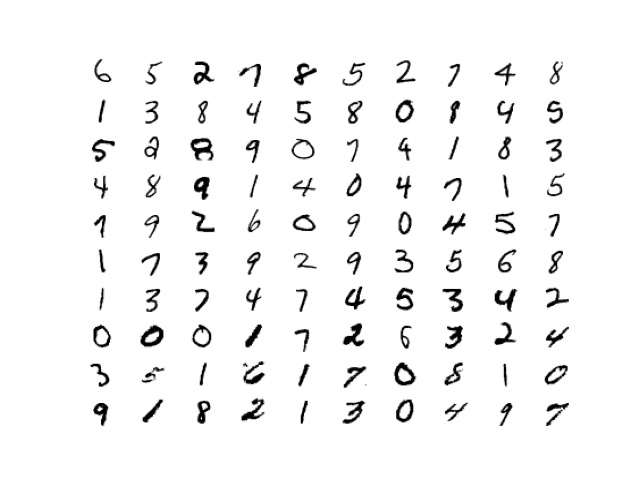 6 5 2 7 8 5 2 7 4 8
1 3 8 4 5 8 0 8 4 5
5 2 8 9 0 7 4 1 8 3
4 8 9 1 4 0 4 7 1 5
7 9 2 6 0 9 0 4 5 7
1 7 3 9 2 9 3 5 6 8
1 3 7 4 7 4 5 3 4 2
0 0 0 1 7 2 6 3 2 4
3 5 1 6 1 7 0 8 1 0
9 1 8 2 1 3 0 4 9 7